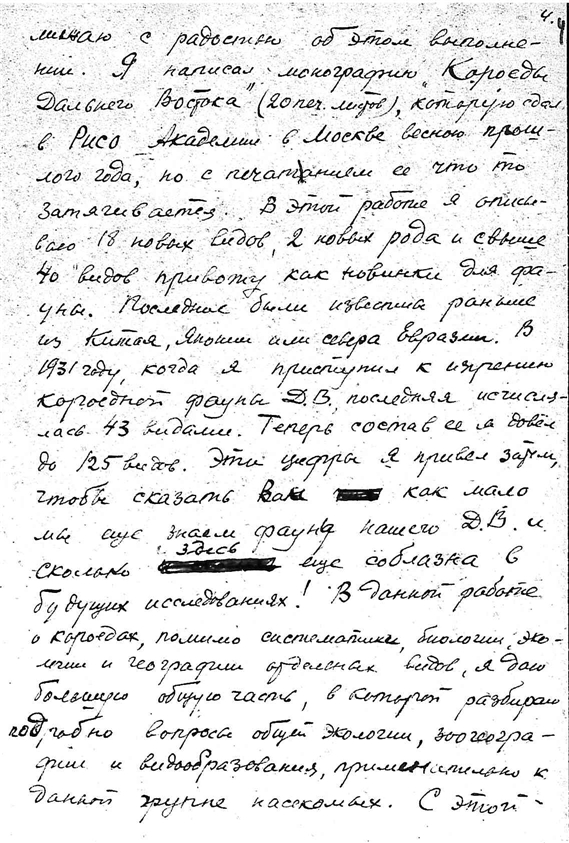 4.
4
минаю с радостью об этом выполне-
нии. Я написал монографию „Короеды
Дальнего Востока" (20 печ. листов), которую сдал
в Рисо Академии в Москве весною прош-
лого года, но с печатанием ее что то
затягивается. В этой работе я описы-
ваю 18 новых видов, 2 новых рода и свыше
40 видов привожу как новинки для фа-
уны. Последние были известны раньше
из Китая, Японии или севера Евразии. В
1931 году, когда я приступил к изучению
короедной фауны Д.В., последняя исчисля-
лась 43 видами. Теперь состав ее я довел
до 125 видов. Эти цифры я привел затем,
чтобы сказать Вам как мало
мы еще знаем фауну нашего Д.В. и
здесь
сколько еще соблазна в
будущих исследованиях! В данной работе
о короедах, помимо систематики, биологии, эко-
логии и географии отдельных видов, я даю
большую общую часть, в которой разбираю
подробно вопросы общей экологии, зоогеогра-
фии и видообразования, применительно к
данной группе насекомых. С этой-